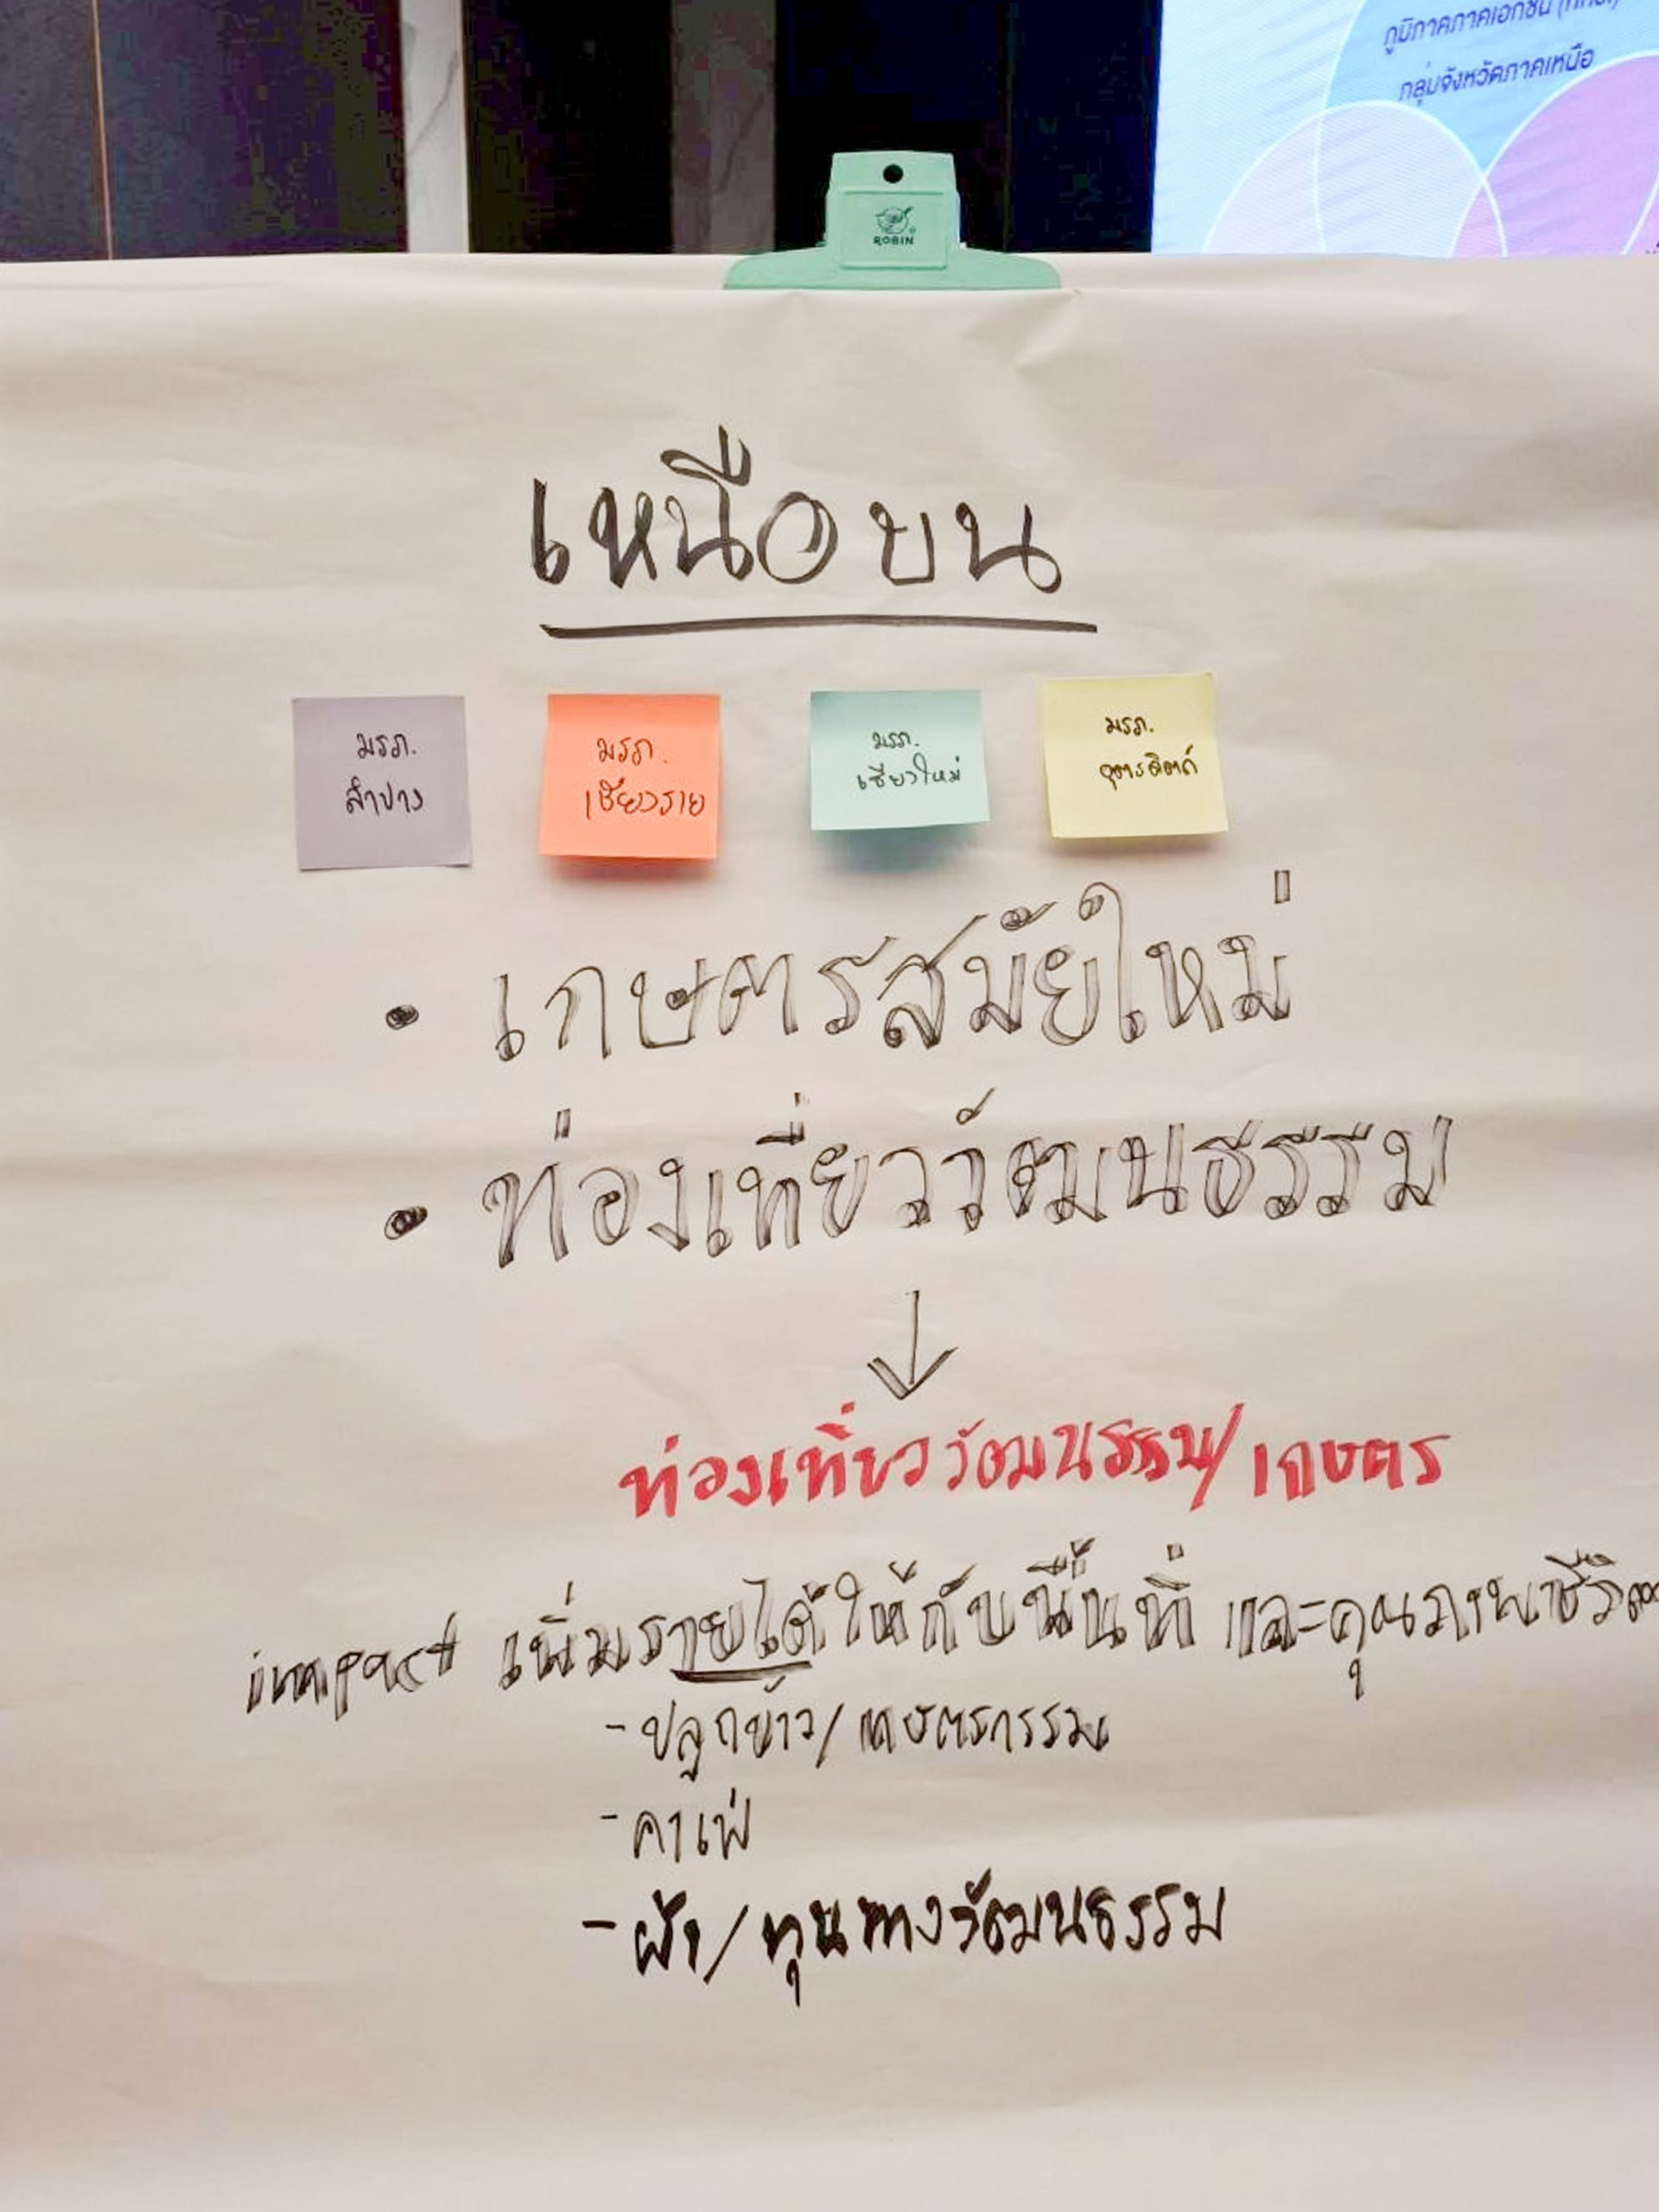 ภูมิภาคภาคเอกชน
กลุ่มจังหวัดภาคเหนือ
ROBIN
เหนือบน
มรภ.
ลำปาง
มรภ.
เชียงราย
มรภ.
เชียงใหม่
มรภ.
อุตรดิตถ์
• เกษตรสมัยใหม่
• ท่องเที่ยววัฒนธรรม
↓
ท่องเที่ยววัฒนธรรม/เกษตร
impact เพิ่มรายได้ให้กับพื้นที่ และคุณภาพชีวิต
- ปลูกข้าว/เกษตรกรรม
- คาเฟ่
- ผ้า/ทุนทางวัฒนธรรม